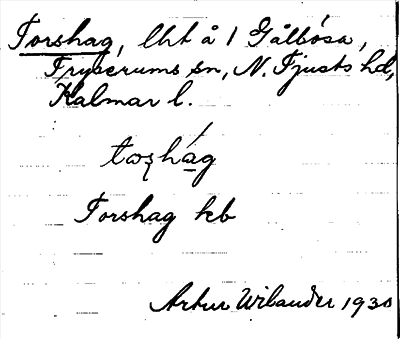 Torshag, lht å 1 Gålbösa,
Tryserums sn, N. Tjusts hd,
Kalmar l.
Torshag kb
Artur Wilander 1930